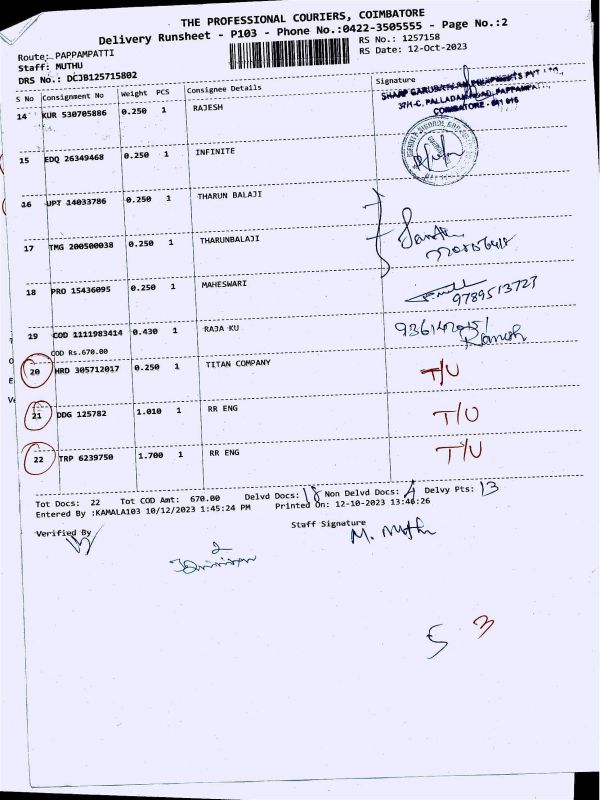 THE PROFESSIONAL COURIERS, COIMBATORE
Delivery Runsheet - P103 - Phone No.:0422-3505555 - Page No.:2
Route: PAPPAMPATTI
RS No.: 1257158
Staff: MUTHU
RS Date: 12-Oct-2023
DRS No.: DCJB125715802
S No Consignment No Weight PCS Consignee Details Signature
14 KUR 530705886 0.250 1 RAJESH
COIMBATORE - 641 016
15 EDQ 26349468 0.250 1 INFINITE
16 UPT 14033786 0.250 1 THARUN BALAJI
17 TMG 200500038 0.250 1 THARUNBALAJI
18 PRO 15436095 0.250 1 MAHESWARI
9789513727
19 COD 1111983414 0.430 1 RAJA KU
Ramesh
COD Rs.670.00
20 HRD 305712017 0.250 1 TITAN COMPANY T/U
21 DDG 125782 1.010 1 RR ENG T/U
22 TRP 6239750 1.700 1 RR ENG T/U
Tot Docs: 22 Tot COD Amt: 670.00 Delvd Docs: 18 Non Delvd Docs: 4 Delvy Pts: 13
Entered By :KAMALA103 10/12/2023 1:45:24 PM Printed On: 12-10-2023 13:46:26
Verified By
Staff Signature
M. Muthu
5 3